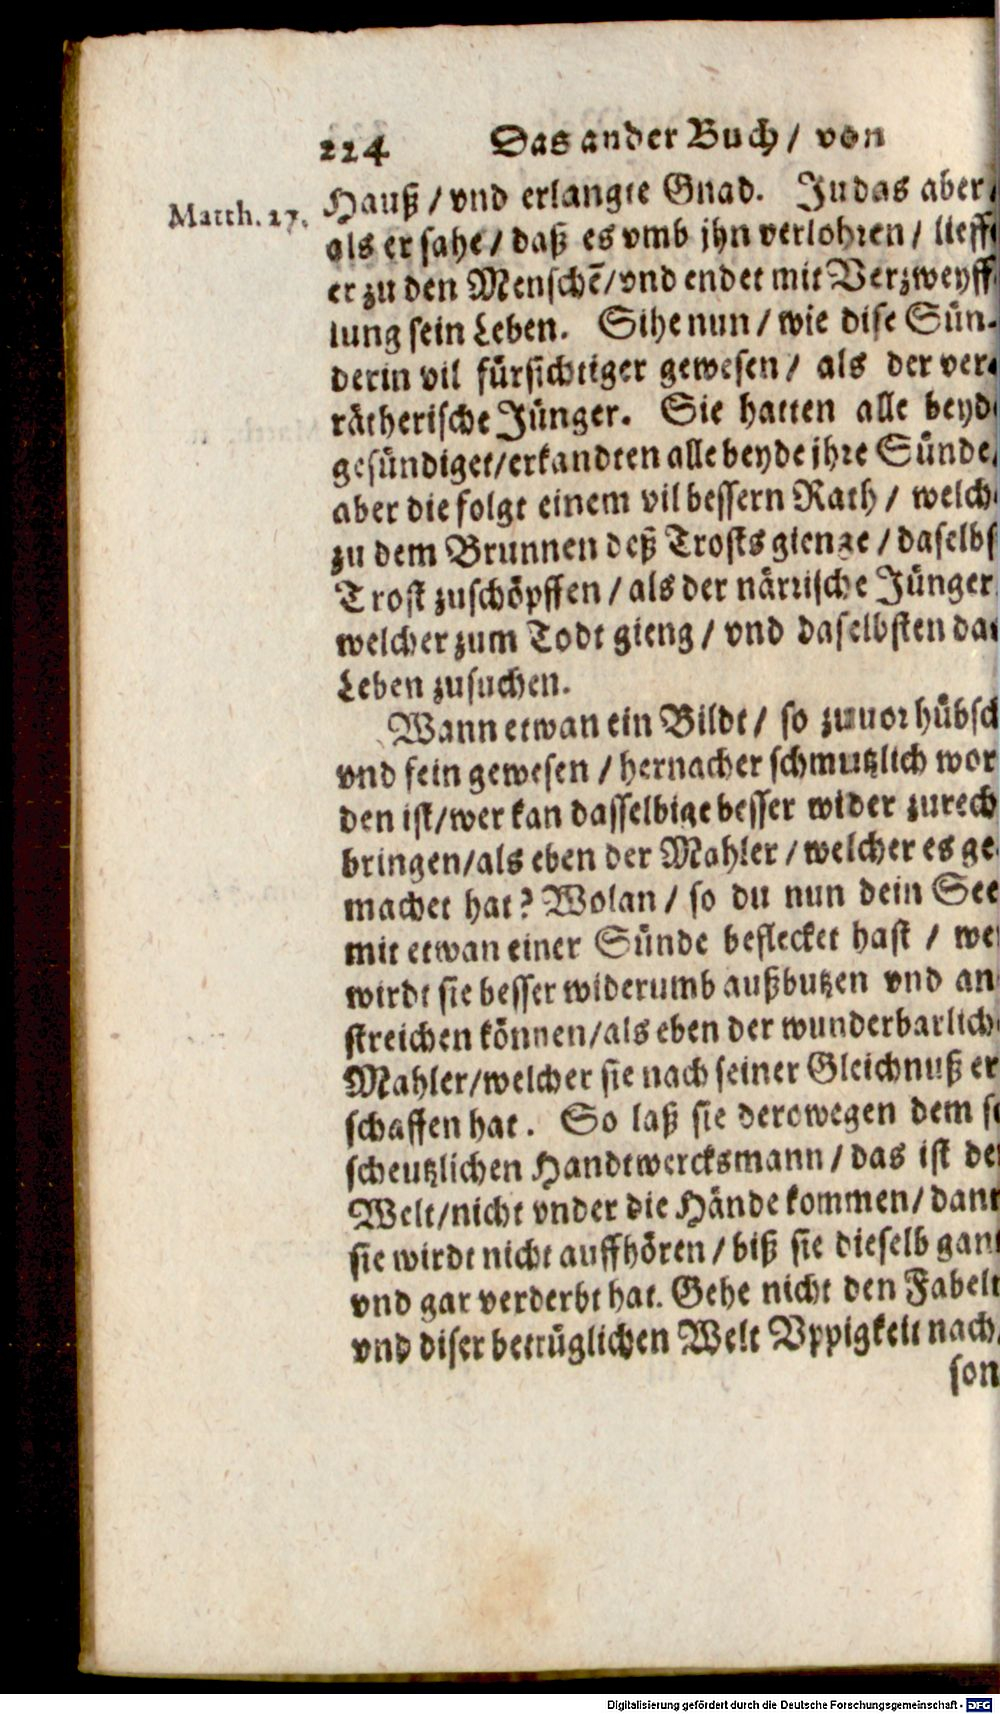 224 Das ander Buch / von
Matth. 27.
Hauß / vnd erlangte Gnad. Judas aber /
als er sahe / daß es vmb jhn verlohren / lieff
er zu den Menschẽ / vnd endet mit Verzweyff
lung sein Leben. Sihe nun / wie dise Sün-
derin vil fürsichtiger gewesen / als der ver-
rätherische Jünger. Sie hatten alle beyd
gesündiget / erkandten alle beyde ihre Sünde /
aber die folgt einem vil bessern Rath / welch
zu dem Brunnen deß Trosts gienge / daselbs
Trost zuschöpffen / als der närrische Jünger
welcher zum Todt gieng / vnd daselbsten da
Leben zusuchen.
Wann etwan ein Bildt / so zuuor hübsch
vnd fein gewesen / hernacher schmutzlich wor
den ist / wer kan dasselbige besser wider zurech
bringen / als eben der Mahler / welcher es ge
machet hat? Wolan / so du nun dein See
mit etwan einer Sünde beflecket hast / we
wirdt sie besser widerumb außbutzen vnd an
streichen können / als eben der wunderbarlich
Mahler / welcher sie nach seiner Gleichnuß er
schaffen hat. So laß sie derowegen dem so
scheutzlichen Handtwercksmann / das ist der
Welt / nicht vnder die Hände kommen / dann
sie wirdt nicht auffhören / biß sie dieselb gan
vnd gar verderbt hat. Gehe nicht den Fabeln
vnd diser betrüglichen Welt Vppigkeit nach /
son
Digitalisierung gefördert durch die Deutsche Forschungsgemeinschaft - DFG